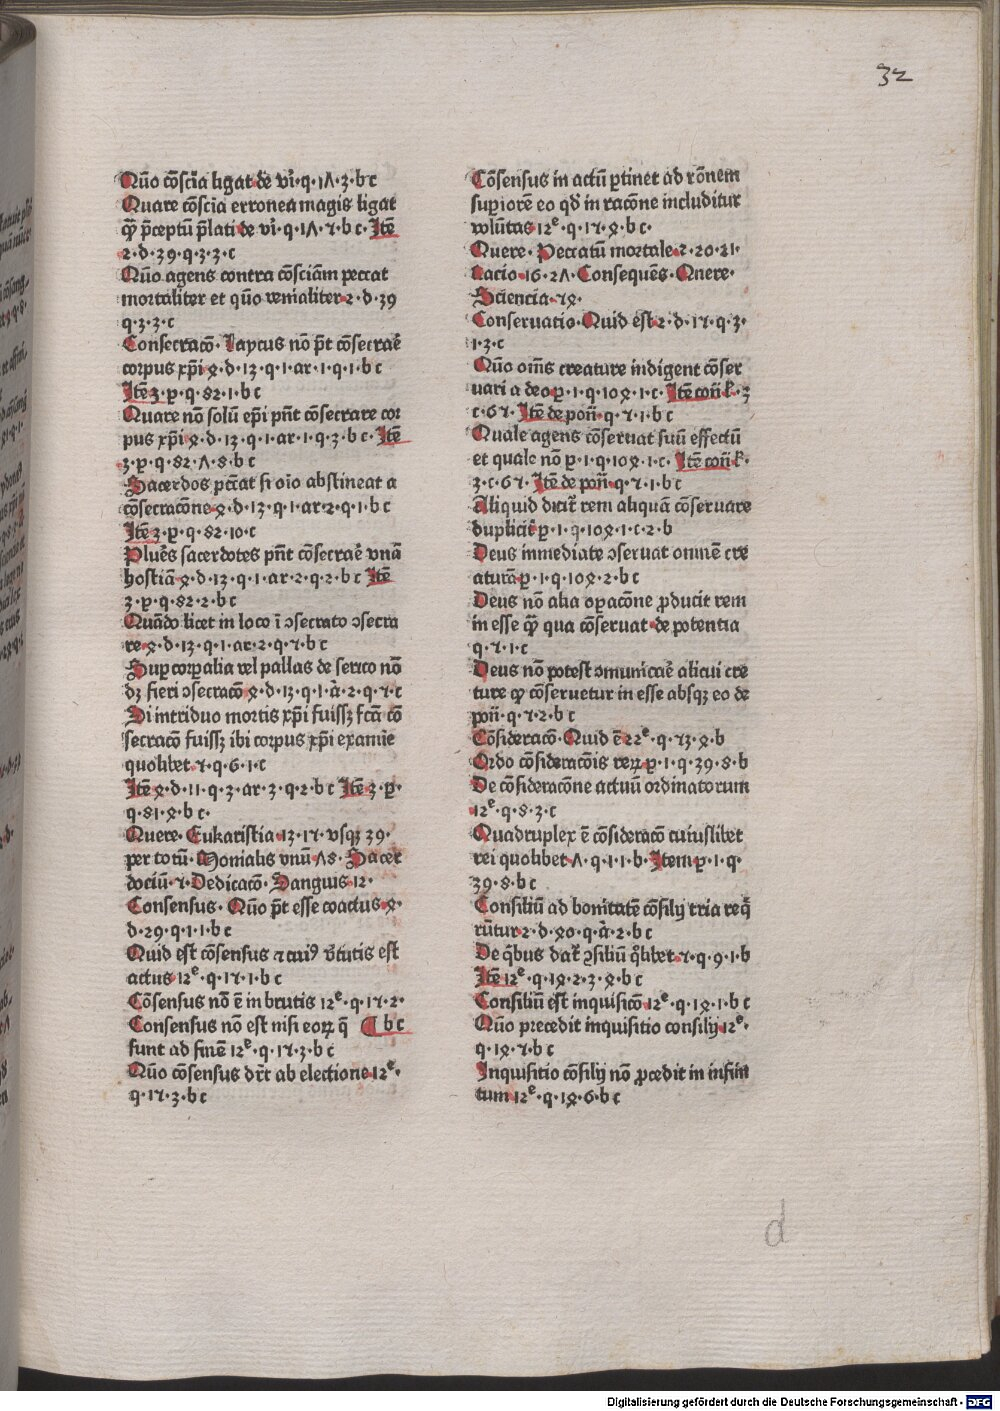 32
Qūo cōsciā ligat de vi·q·17·3·b c
Quare cōsciā erronea magis ligat
q̄ȝ p̄ceptū p̄lati de vi·q·17·5·b c·Itē
2·d·39·q·3·3·c
Qūo agens contra cōsciām peccat
mortaliter et qūo venialiter·2·d·39
q·3·3·c
Consecracō·Laycus nō p̄t cōsecraē
corpus xp̄i 4·d·13·q·1·ar·1·q·1·b c
Itē 3·p·q·82·1·b c
Quare nō solū ep̄i pn̄t cōsecrare cor
pus xp̄i 4·d·13·q·1·ar·1·q·3·b c·Itē
3·p·q·82·7·8·b c
Sacerdos pctāt si oīo abstineat a
cōsecracōne·4·d·13·q·1·ar·2·q·1·b c
Itē 3·p·q·82·10·c
Pluēs sacerdotes pn̄t cōsecraē vnā
hostiā 4·d·13·q·1·ar·2·q·2·b c Itē
3·p·q·82·2·b c
Quādo licet in loco ī ɔsecrato ɔsecra
re 4·d·13·q·1·ar·2·q·5·b c
Suꝑ corꝑalia vel pallas de serico nō
dȝ fieri ɔsecracō 4·d·13·q·1·ā·2·q·5·c
Si in triduo mortis xp̄i fuissȝ fcā cō
secracō fuissȝ ibi corpus xp̄i examīe
quolibet·5·q·6·1·c
Itē 4·d·11·q·3·ar·3·q·2·b c Itē 3·p·
q·81·4·b c·
Quere·Eukaristia·13·15·vsqȝ 39·
per totū·Monialis vnū·78·Sacer
dociū·5·Dedicacō·Sanguis 12·
Consensus·Qūo p̄t esse coactus·4·
d·29·q·1·1·b c
Quid est cōsensus ⁊ cuiꝰ v̄tutis est
actus 12ᵉ·q·15·1·b c
Cōsensus nō ē in brutis 12ᵉ·q·15·2·
Consensus nō est nisi eoꝝ q̄ ¶ b c
sunt ad finē 12ᵉ·q·15·3·b c
Qūo cōsensus dr̄t ab electione·12ᵉ·
q·15·3·b c
Cōsensus in actū ꝑtinet ad rōnem
suꝑiorē eo qd̄ in racōne includitur
volūtas 12ᵉ·q·15·4·b c·
Quere·Peccatū mortale·2·20·21·
Racio·16·27·Consequēs·Quere·
Sciencia·54·
Conseruatio·Quid est·2·d·15·q·3·
1·3·c
Qūo om̄s creature indigent cōser
uari a deo·p·1·q·104·1·c·Itē con̄ ꝉ·3
c·65·Itē de pon̄·q·5·1·b c
Quale agens cōseruat suū effectū
et quale nō p·1·q·104·1·c·Itē con̄ ꝉ·
3·c·65·Itē de pon̄·q·5·1·b c
Aliquid dicit̄ rem aliquā cōseruare
duplicit̄ p·1·q·104·1·c·2·b
Deus immediate ɔseruat omnē cre
aturā p·1·q·104·2·b c
Deus nō alia oꝑacōne ꝓducit rem
in esse q̄ȝ qua cōseruat·de potentia
q·5·1·c
Deus nō potest ɔmunicaē alicui cre
ture ꝙ cōseruetur in esse absqȝ eo de
pon̄·q·5·2·b c
Cōsideracō·Quid ē 22ᵉ·q·53·4·b
Ordo cōsideracōis reꝝ p·1·q·39·8·b
De cōsideracōne actuū ordinatorum
12ᵉ·q·8·3·c
Quadruplex ē cōsideracō cuiuslibet
rei quolibet·7·q·1·1·b·Item p·1·q·
39·8·b c
Consiliū ad bonitatē cōsilij tria reqͥ
rūtur·2·d·40·q·ā·2·b c
De q̄bus dat̄ ɔsiliū q̄libet·5·q·9·1·b
Itē 12ᵉ·q·14·2·3·4·b c
Consiliū est inquisitō·12ᵉ·q·14·1·b c
Qūo precedit inquisitio consilij·12ᵉ·
q·14·5·b c
Inquisitio cōsilij nō ꝓcedit in infini
tum 12ᵉ·q·14·6·b c
d
Digitalisierung gefördert durch die Deutsche Forschungsgemeinschaft · DFG